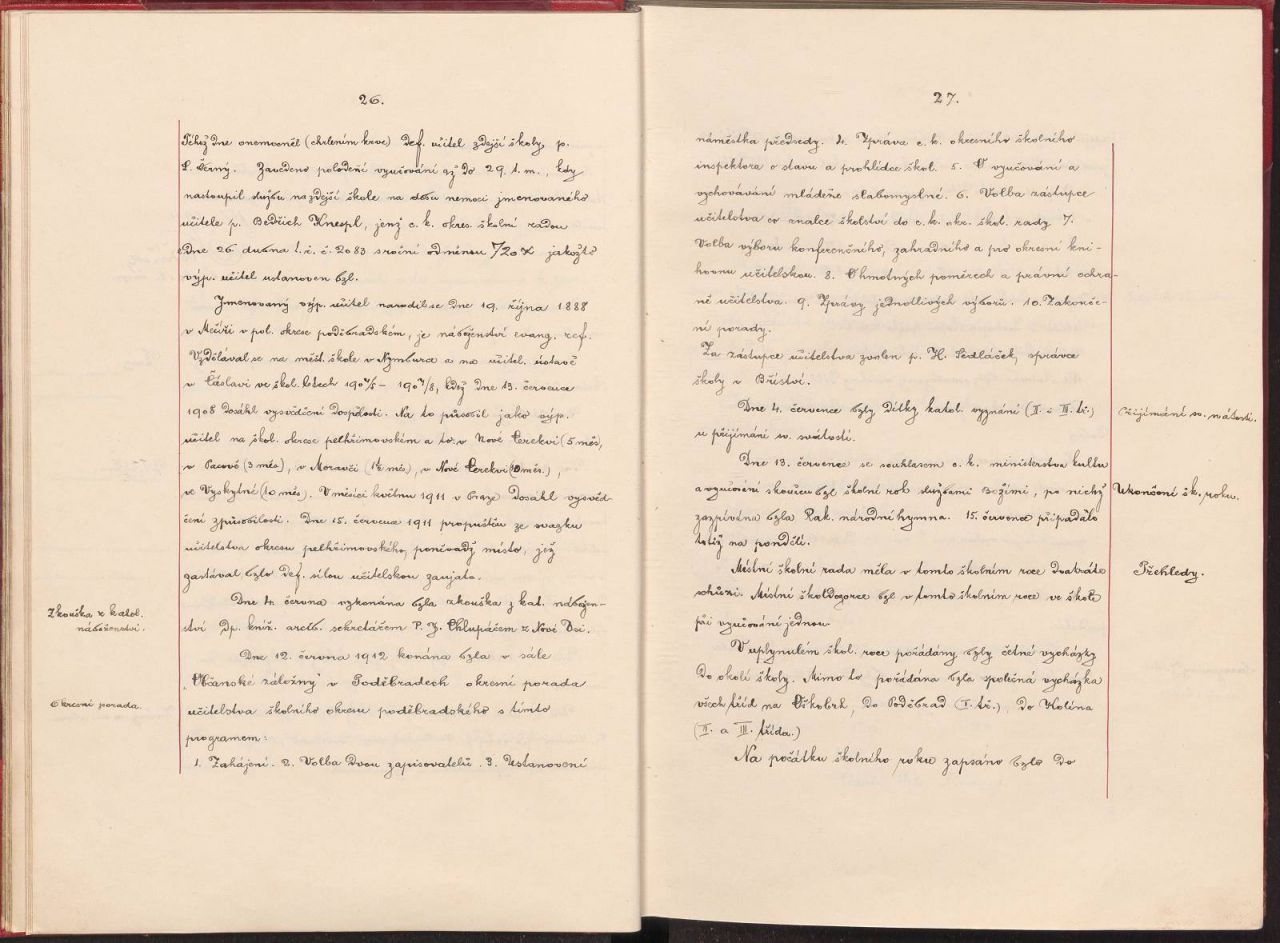 26.
Téhož dne onemocněl (chrlením krve) def. učitel zdejší školy, p.
Černý. Zavedeno polodenní vyučování až do 29. t. m., kdy
nastoupil službu na zdejší škole na dobu nemoci jmenovaného
učitele p. Bedřich Knespl, jenž c. k. okres. školní radou
dne 26. dubna t. r. č. 2083 s roční odměnou 720 K jakožto
výp. učitel ustanoven byl.
Jmenovaný výp. učitel narodil se dne 19. října 1888
v pol. okrese poděbradském, je náboženství evang. ref.
Vzdělával se na měšť. škole v Nymburce a na učitel. ústavě
v Čáslavi ve škol. letech 1904/5 – 1907/8, když dne 13. července
1908 dosáhl vysvědčení dospělosti. Na to působil jako výp.
učitel na škol. okrese pelhřimovském a to: v Nové Cerekvi (5 měs.,
v Pacově (3 měs.), v Moravči (1½ měs.), v Nové Cerekvi
ve Vyskytné (10 měs.). V měsíci květnu 1911 v Praze dosáhl vysvěd-
čení způsobilosti. Dne 15. července 1911 propuštěn ze svazku
učitelstva okresu pelhřimovského, poněvadž místo, jež
zastával bylo def. silou učitelskou zaujato.
Zkouška z katol.
náboženství.
Dne 4. června vykonána byla zkouška z kat. nábožen-
ství dp. kníž. arcib. sekretářem P. J. Chlupáčem z Nové Vsi.
Dne 12. června 1912 konána byla v sále
„Občanské záložny" v Poděbradech okresní porada
Okresní porada.
učitelstva školního okresu poděbradského s tímto
programem:
1. Zahájení. 2. Volba dvou zapisovatelů. 3. Ustanovení
27.
náměstka předsedy. 4. Zpráva c. k. okresního školního
inspektora o stavu a prohlídce škol. 5. O vyučování a
vychovávání mládeže slabomyslné. 6. Volba zástupce
učitelstva co znalce školství do c. k. okr. škol. rady 7.
Volba výboru konferenčního, zahradního a pro okresní kni-
hovnu učitelskou. 8. O hmotných poměrech a právní ochra-
ně učitelstva. 9. Zprávy jednotlivých výborů. 10. Zakonče-
ní porady.
Za zástupce učitelstva zvolen p. H. Sedláček, správce
školy v Bříství.
Dne 4. července byly dítky katol. vyznání (II. i III. tř.)
Přijímání sv. svátosti.
u přijímání sv. svátosti.
Dne 13. července se souhlasem c. k. ministerstva kultu
a vyučování skončen byl školní rok službami Božími, po nichž
Ukončení šk. roku.
zazpívána byla Rak. národní hymna. 15. července připadalo
totiž na pondělí.
Místní školní rada měla v tomto školním roce dvakráte
Přehledy.
schůzi. Místní školdozorce byl v tomto školním roce ve škole
při vyučování jednou.
V uplynulém škol. roce pořádány byly četné vycházky
do okolí školy. Mimo to pořádána byla společná vycházka
všech tříd na Oškobrh, do Poděbrad (I. tř.), do Kolína
(II. a III. třída.)
Na počátku školního roku zapsáno bylo do